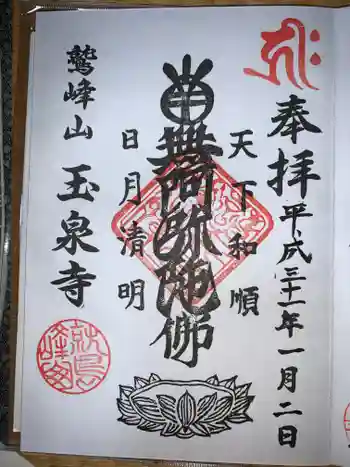 奉拝
平成三十一年一月二日
天下和順
南無阿弥陀佛
日月清明
鷲峰山
玉泉寺